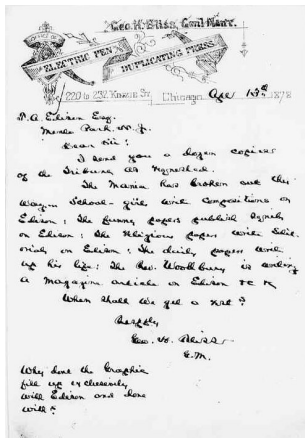 Geo. H. Bliss, Genl. Manr.
ELECTRIC PEN &
DUPLICATING PRESS
220 to 232 Kinzie St. Chicago, Apr 15th 1878
T. A. Edison Esq.
Menlo Park, N. J.
Dear Sir:
I send you a dozen copies
of the Tribune as requested.
The Mania has broken out this
way. School-girls write Compositions on
Edison: The funny papers publish squibs
on Edison: The religious papers write Edit-
orials on Edison: The daily papers write
up his life: The Rev. Woodbury is writing
a Magazine article on Edison &c &c
When shall we get a rest?
Respfly
Geo. H. Bliss
G. M.
Why dont the Graphic
fill up exclusively
with Edison and done
with it